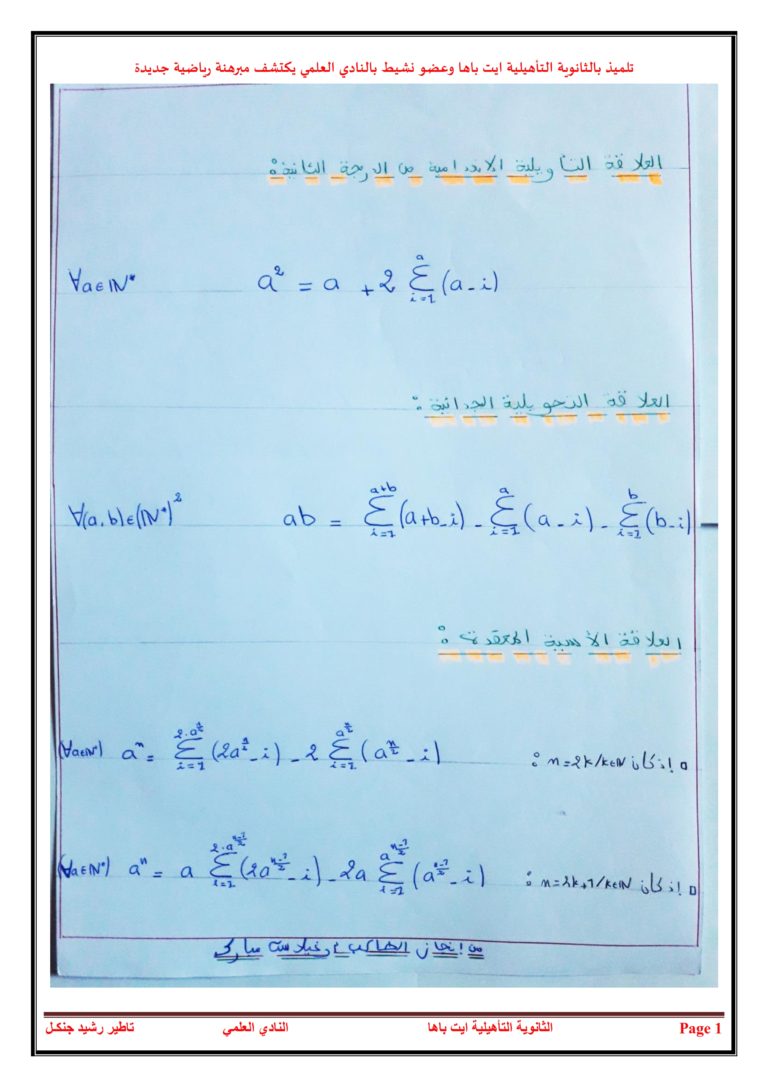 تلميذ بالثانوية التأهيلية ايت باها وعضو نشيط بالنادي العلمي يكتشف مبرهنة رياضية جديدة
العلاقة التأويلية الانعدامية من الدرجة الثانية:
∀a∈ℕ* a² = a + 2 ∑_{i=1}^{a} (a-i)
العلاقة التحويلية الجدائية:
∀(a,b)∈(ℕ*)² ab = ∑_{i=1}^{a+b} (a+b-i) - ∑_{i=1}^{a} (a-i) - ∑_{i=1}^{b} (b-i)
العلاقة الأسية المعقدة:
□ إذ كان n=2k/k∈ℕ : (∀a∈ℕ*) aⁿ = ∑_{i=1}^{2·a^{n/2}} (2a^{n/2}-i) - 2 ∑_{i=1}^{a^{n/2}} (a^{n/2}-i)
□ إذ كان n=2k+1/k∈ℕ : (∀a∈ℕ*) aⁿ = a ∑_{i=1}^{2·a^{(n-1)/2}} (2a^{(n-1)/2}-i) - 2a ∑_{i=1}^{a^{(n-1)/2}} (a^{(n-1)/2}-i)
من إنجاز الطالب مبارك
تاطير رشيد جنكل النادي العلمي الثانوية التأهيلية ايت باها Page 1